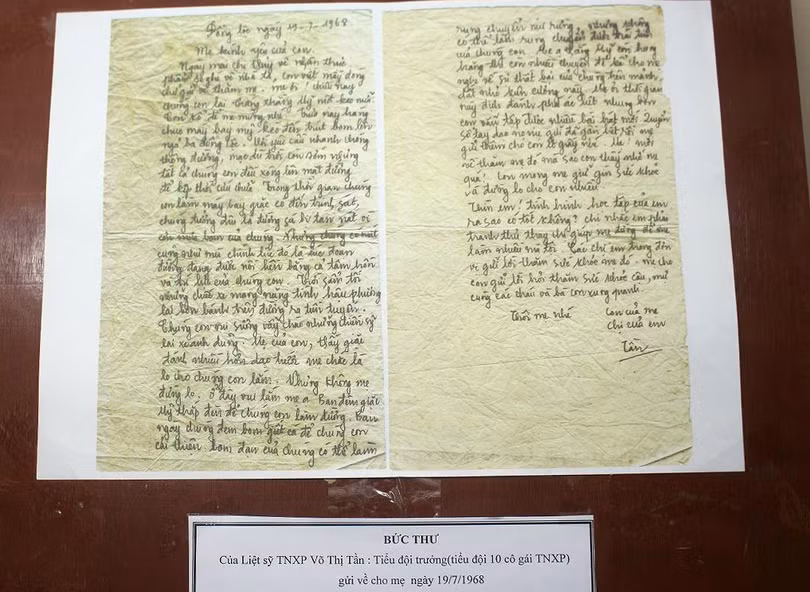 Đồng lộc ngày 19-7-1968
Mẹ kính yêu của con.
Ngày mai chị Thùy về nhận thưa
phân số ghi về nhà ta, con viết mấy dòng
chữ gửi về thăm mẹ. mẹ ơi! chiều nay
chúng con lại thắng thằng Mỹ một keo nữa
con kể để mẹ mừng nhé! Trưa nay hàng
chục máy bay mỹ kéo đến trút bom lên
ngã ba đồng lộc. Với yêu cầu nhanh chóng
thông đường, mạo dù trời còn sớm nhưng
tất cả chúng con đều xông lên mặt đường
để kịp thời cứu chữa. Trong thời gian chúng
con làm máy bay giặc có đến trinh sát,
chúng tưởng đâu là đường sá bị tan nát vì
cơn mưa bom của chúng. Nhưng chúng có biết
cũng như mũi chính lúc đó là lúc đoạn
đường đang được nối liền bằng cả tâm hồn
và trí lực của chúng con. Trời sẩm tối
những chiếc xe mang nặng tình hậu phương
lại bon bánh trên đường ra tiền tuyến.
Chúng con vui sướng vẫy chào những chiến sỹ
lái xe anh dũng. Mẹ của con, thấy giặc
đánh nhiều hơn dạo trước mẹ chắc là
lo cho chúng con lắm. Nhưng không mẹ
đừng lo. Ở đây vui lắm mẹ ạ Ban đêm giặc
Mỹ thắp đèn để chúng con làm đường. Ban
ngày chúng đem bom giết cá để chúng con
cải thiện bom đạn của chúng có thể làm
rung chuyển núi rừng, nhưng không
có thể làm rung chuyển được trái tim
của chúng con. Mẹ ạ thằng Mỹ còn hung
hăng thì con nhiều chuyện để kể cho mẹ
nghe về sự thất bại của chúng trên mảnh
đất nhỏ kiên cường này. Mẹ ơi thời gian
này địch đánh phá ác liệt nhưng bọn
con vẫn tập được nhiều bài hát mới. Quyển
sổ tay dạo nọ mẹ gửi đã gần hết rồi mẹ
gửi thêm cho con ít giấy nhé. Lạ! mới
về thăm mẹ đó mà sao con thấy nhớ mẹ
quá! Con mong mẹ giữ gìn sức khỏe
và đừng lo cho con nhiều
Thìn em! tình hình học tập của em
ra sao có tốt không? chị nhắc em phải
tranh thủ thay chị giúp mẹ đừng để mẹ
làm nhiều mà tội. Các chị em trong đơn
vị gửi lời thăm sức khỏe mẹ đó. mẹ cho
con gửi lời hỏi thăm sức khỏe cậu, mự
cùng các cháu và bà con xung quanh.
Thôi mẹ nhé
Con của mẹ
Chị của em
Tần
BỨC THƯ
Của Liệt sỹ TNXP Võ Thị Tần : Tiểu đội trưởng(tiểu đội 10 cô gái TNXP)
gửi về cho mẹ ngày 19/7/1968